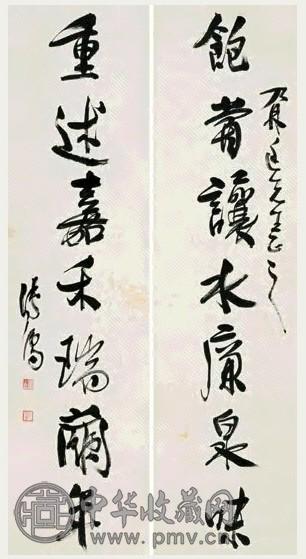 飽嘗讓水廉泉味
重述嘉禾瑞繭年
中华收藏网
www.pmv.cn